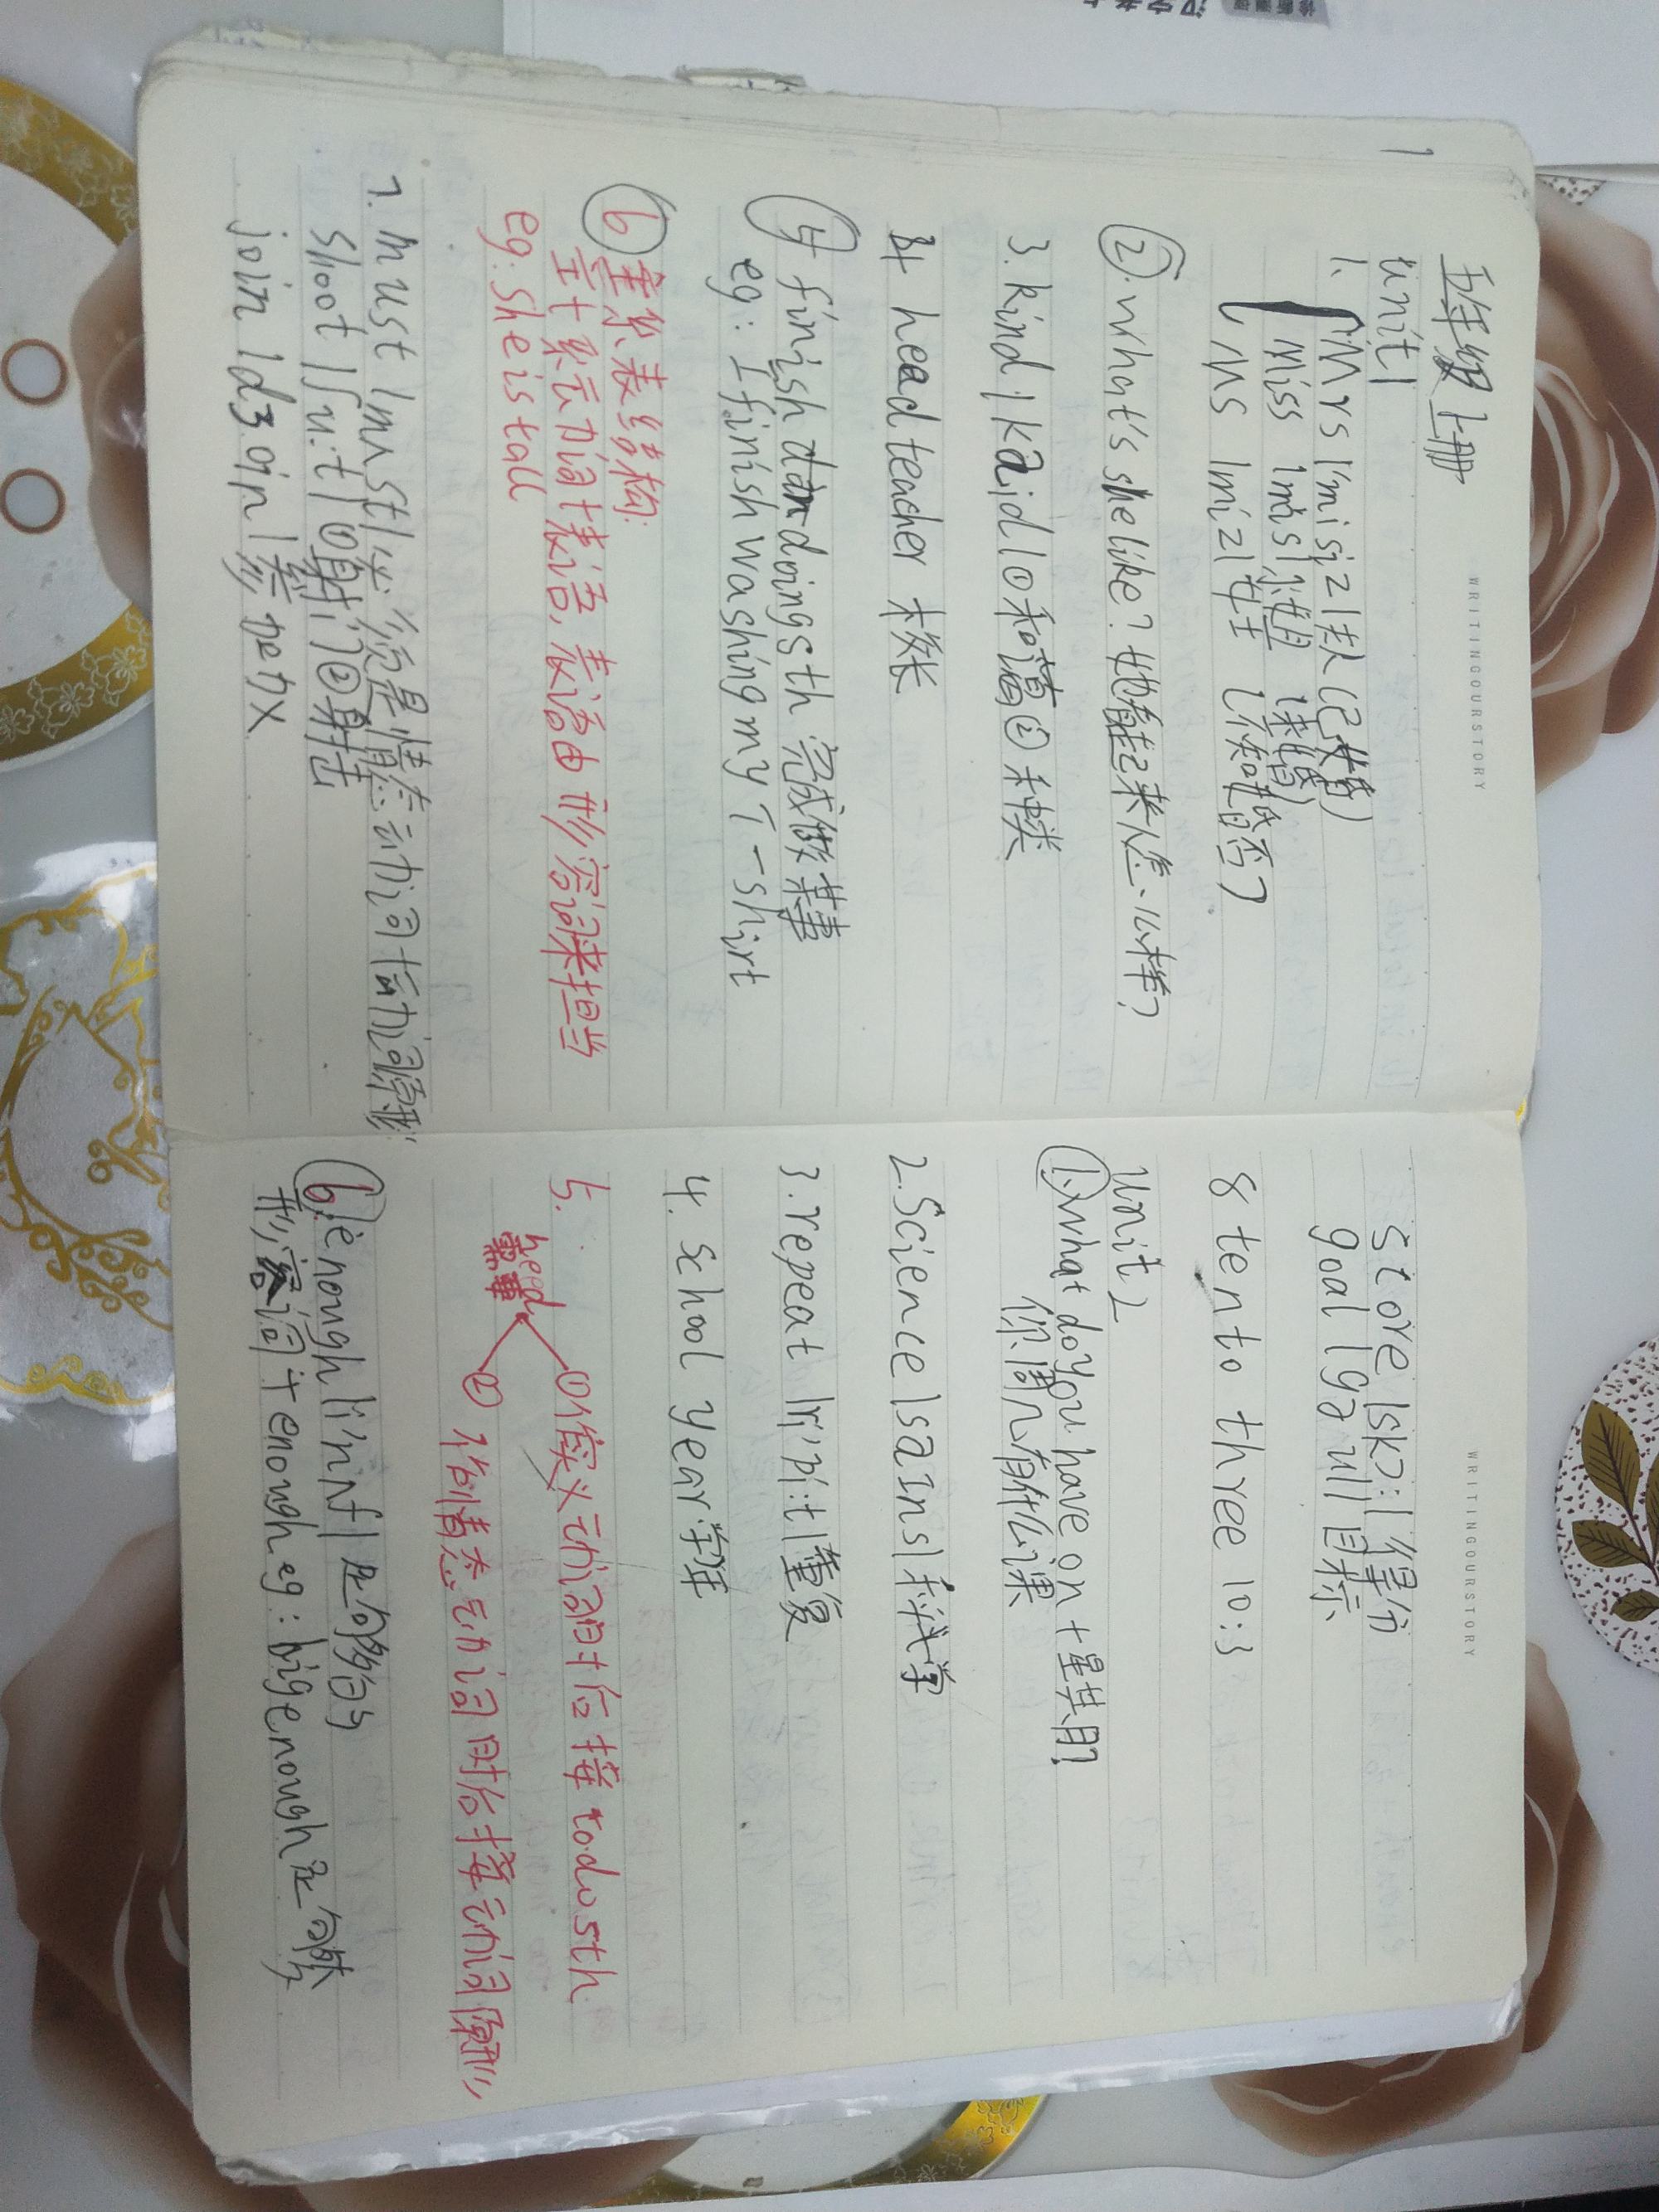 WRITINGOURSTORY
五年级上册
unit 1
1. Mrs |'misiz| 夫人 (已婚)
Miss |mɪs| 小姐 (未婚)
Ms |miz| 女士 (不知婚否)
②. What's she like? 她看起来怎么样?
3. kind |kaid| ①和蔼 ②种类
4 head teacher 校长
5 finish doing sth 完成做某事
eg: I finish washing my T-shirt
6 主系表结构:
主+表示动词+表语, 表语由形容词来担当
eg. She is tall
7. must |mʌst| 必须是情态动词+动词原形
shoot |ʃu:t| ①射门②射击
join |dʒoin| 参加
WRITINGOURSTORY
store |skɔ:| 得分
goal |gəul| 目标
8 ten to three 10:3
unit 2
1. What do you have on + 星期?
你周几有什么课
2. Science |saɪns| 科学
3. repeat |ri'pi:t| 重复
4. school year 学年
5.
need
需要
①作实义动词时后接 to do sth
②作情态动词时后接动词原形
6. enough |i'nʌf| 足够的
形容词+enough eg: big enough 足够大